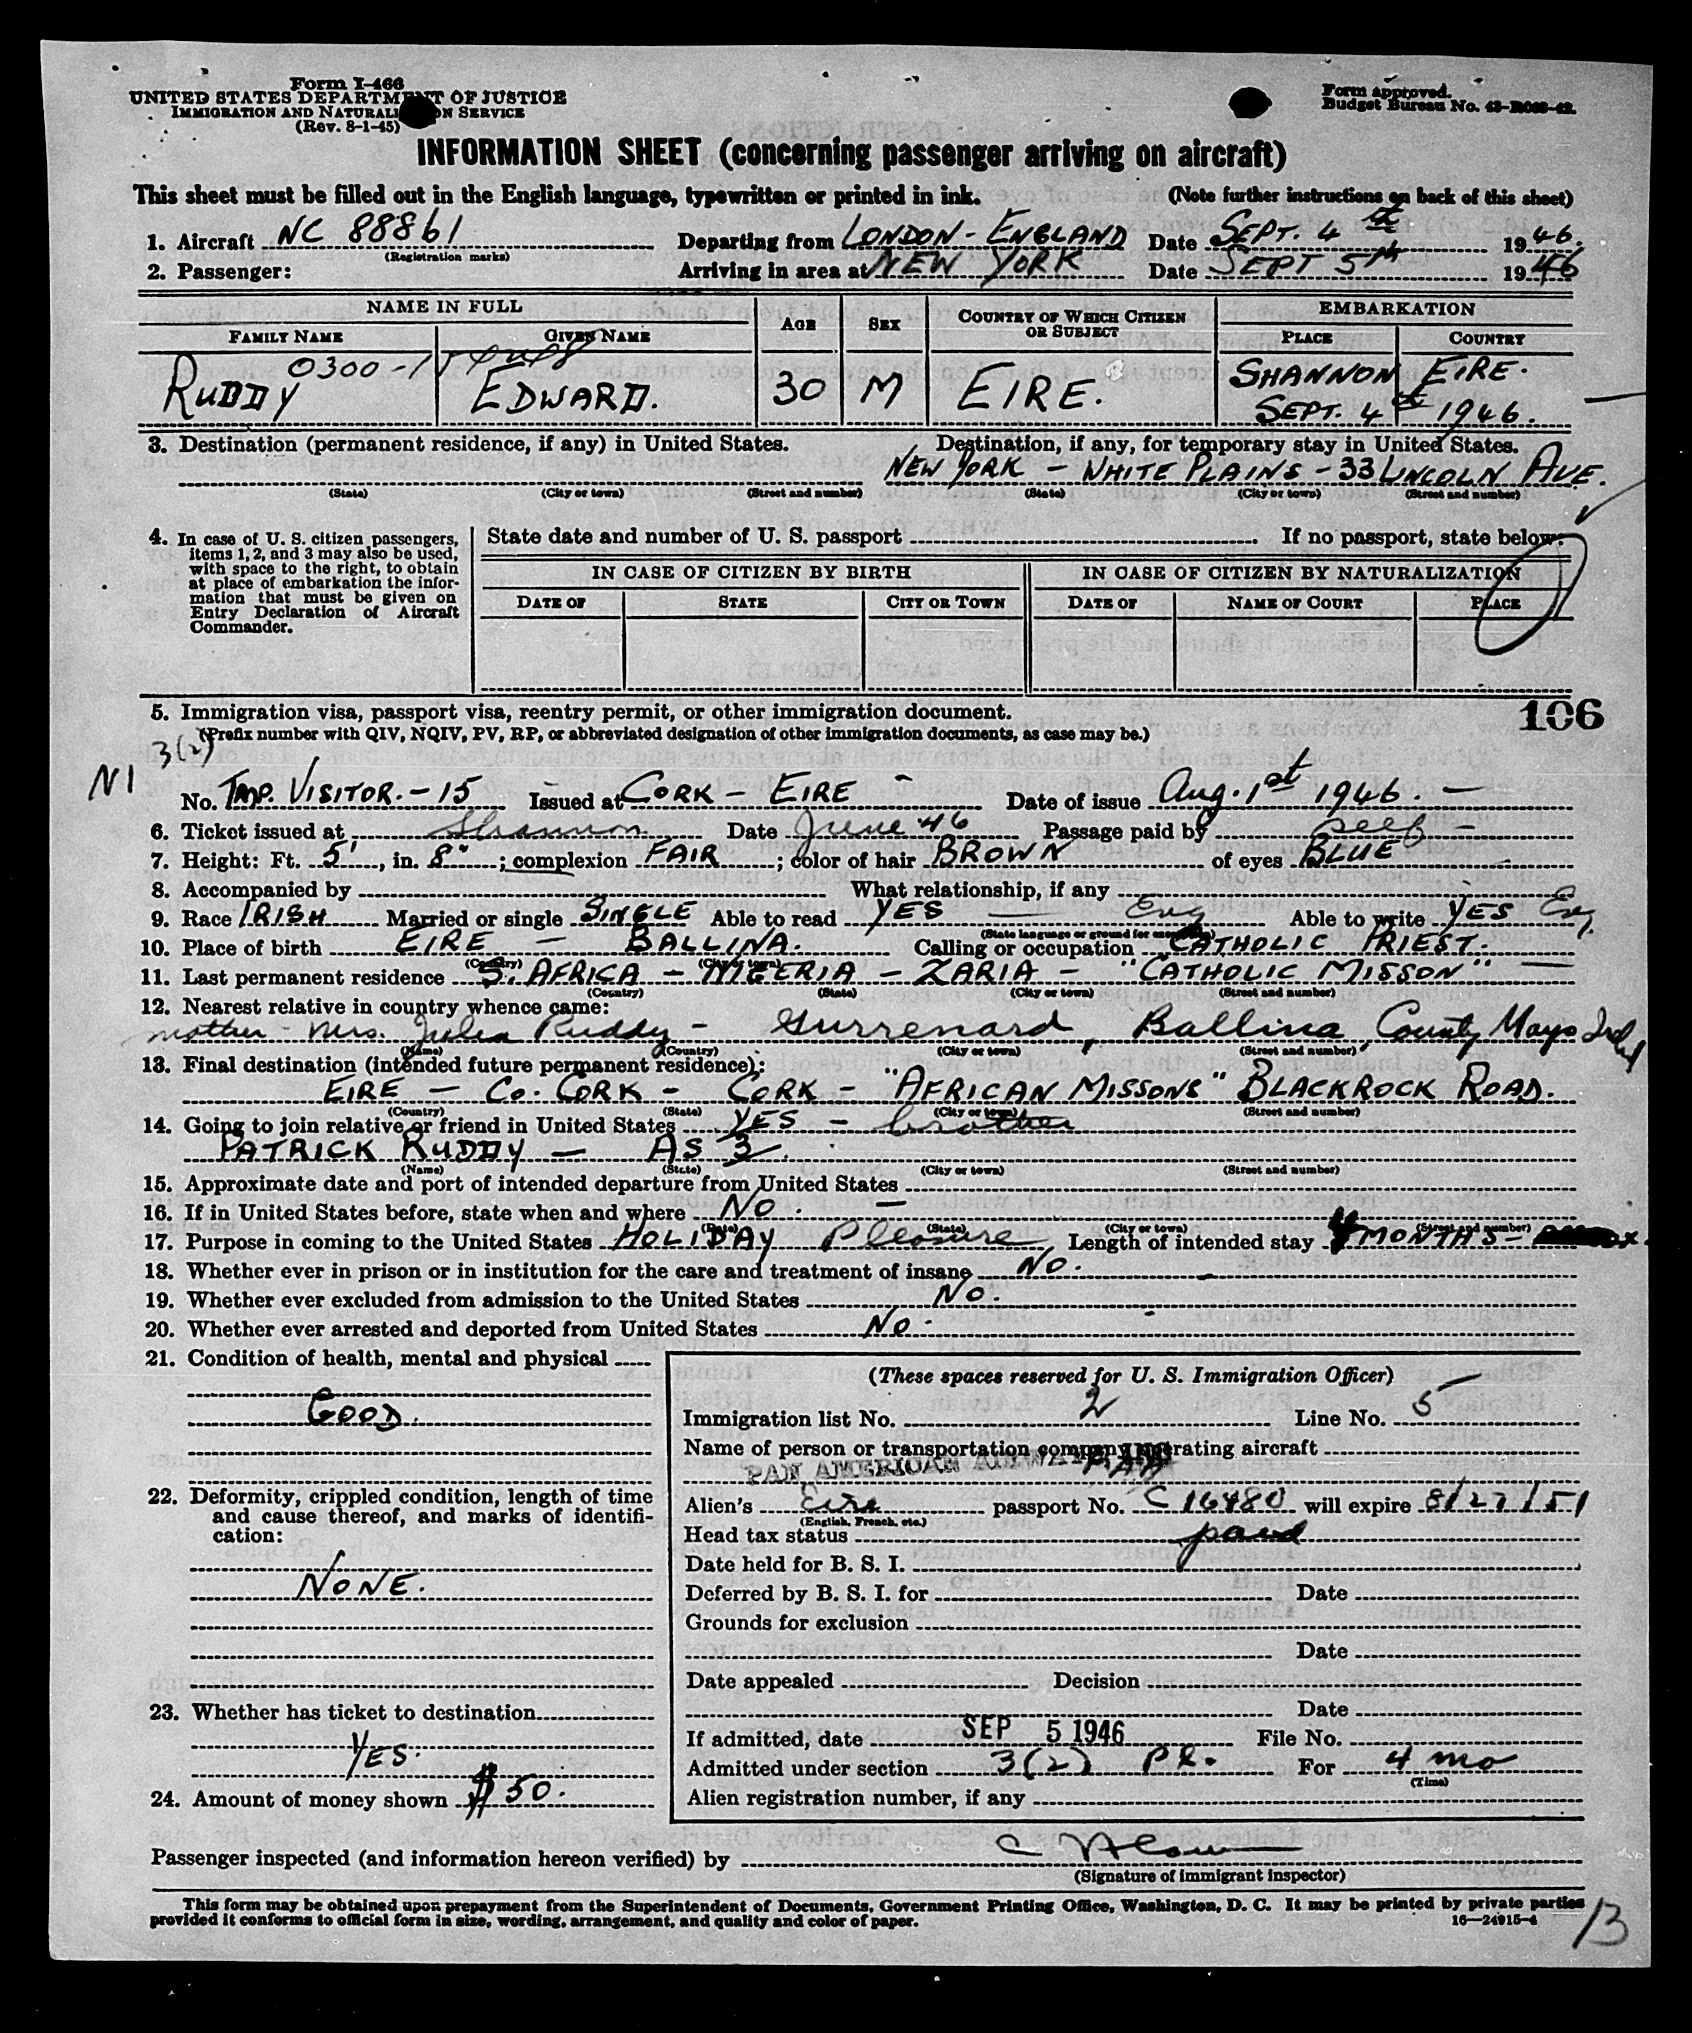 Form I-466
UNITED STATES DEPARTMENT OF JUSTICE
IMMIGRATION AND NATURALIZATION SERVICE
(Rev. 8-1-45)
Form approved.
Budget Bureau No.
INFORMATION SHEET (concerning passenger arriving on aircraft)
This sheet must be filled out in the English language, typewritten or printed in ink. (Note further instructions on back of this sheet)
1. Aircraft NC 88861 Departing from LONDON - ENGLAND Date SEPT. 4th 1946.
(Registration marks)
2. Passenger: Arriving in area at NEW YORK Date SEPT 5th 1946
NAME IN FULL AGE SEX COUNTRY OF WHICH CITIZEN OR SUBJECT EMBARKATION
FAMILY NAME GIVEN NAME PLACE COUNTRY
0300-
RUDDY EDWARD. 30 M EIRE. SHANNON EIRE.
SEPT. 4th 1946.
3. Destination (permanent residence, if any) in United States. Destination, if any, for temporary stay in United States.
NEW YORK - WHITE PLAINS - 33 LINCOLN AVE.
(State) (City or town) (Street and number) (State) (City or town) (Street and number)
4. In case of U. S. citizen passengers, items 1, 2, and 3 may also be used, with space to the right, to obtain at place of embarkation the information that must be given on Entry Declaration of Aircraft Commander.
State date and number of U. S. passport If no passport, state below:
IN CASE OF CITIZEN BY BIRTH IN CASE OF CITIZEN BY NATURALIZATION
DATE OF STATE CITY OR TOWN DATE OF NAME OF COURT PLACE
5. Immigration visa, passport visa, reentry permit, or other immigration document. 106
(Prefix number with QIV, NQIV, PV, RP, or abbreviated designation of other immigration documents, as case may be.)
3(2)
NI
No. TMP. VISITOR. - 15 Issued at CORK - EIRE Date of issue Aug. 1st 1946. -
6. Ticket issued at Shannon Date June 46 Passage paid by self -
7. Height: Ft. 5', in. 8"; complexion FAIR; color of hair BROWN of eyes BLUE
8. Accompanied by What relationship, if any
9. Race IRISH Married or single SINGLE Able to read YES - Eng Able to write YES Eng.
(State language or ground for exemption)
10. Place of birth EIRE - BALLINA. Calling or occupation CATHOLIC PRIEST.
(Country) (City or town)
11. Last permanent residence S. AFRICA - NIGERIA - ZARIA - "CATHOLIC MISSON" -
(Country) (State) (City or town) (Street and number)
12. Nearest relative in country whence came:
mother - Mrs. Julia Ruddy - Gurrenard, Ballina, County Mayo Ireland
(Name) (Country) (City or town) (Street and number)
13. Final destination (intended future permanent residence):
EIRE - CO. CORK - CORK - "AFRICAN MISSONS" BLACKROCK ROAD.
(Country) (State) (City or town) (Street and number)
14. Going to join relative or friend in United States YES - brother
PATRICK RUDDY - AS 3.
(Name) (State) (City or town) (Street and number)
15. Approximate date and port of intended departure from United States
16. If in United States before, state when and where NO. -
(Date) (State) (City or town) (Street and number)
17. Purpose in coming to the United States HOLIDAY Pleasure Length of intended stay 4 MONTHS -
18. Whether ever in prison or in institution for the care and treatment of insane NO.
19. Whether ever excluded from admission to the United States NO.
20. Whether ever arrested and deported from United States NO.
21. Condition of health, mental and physical
GOOD.
22. Deformity, crippled condition, length of time and cause thereof, and marks of identification:
NONE.
23. Whether has ticket to destination
YES.
24. Amount of money shown $50.
(These spaces reserved for U. S. Immigration Officer)
Immigration list No. 2 Line No. 5
Name of person or transportation company operating aircraft
PAN AMERICAN AIRWAYS, INC
PAA
Alien's Eire passport No. C 16480 will expire 8/27/51
(English, French, etc.)
Head tax status paid
Date held for B. S. I.
Deferred by B. S. I. for Date
Grounds for exclusion
Date
Date appealed Decision
Date
If admitted, date SEP 5 1946 File No.
Admitted under section 3(2) PR. For 4 mo
(Time)
Alien registration number, if any
Passenger inspected (and information hereon verified) by
(Signature of immigrant inspector)
This form may be obtained upon prepayment from the Superintendent of Documents, Government Printing Office, Washington, D. C. It may be printed by private parties
provided it conforms to official form in size, wording, arrangement, and quality and color of paper. 16—24915-4
13